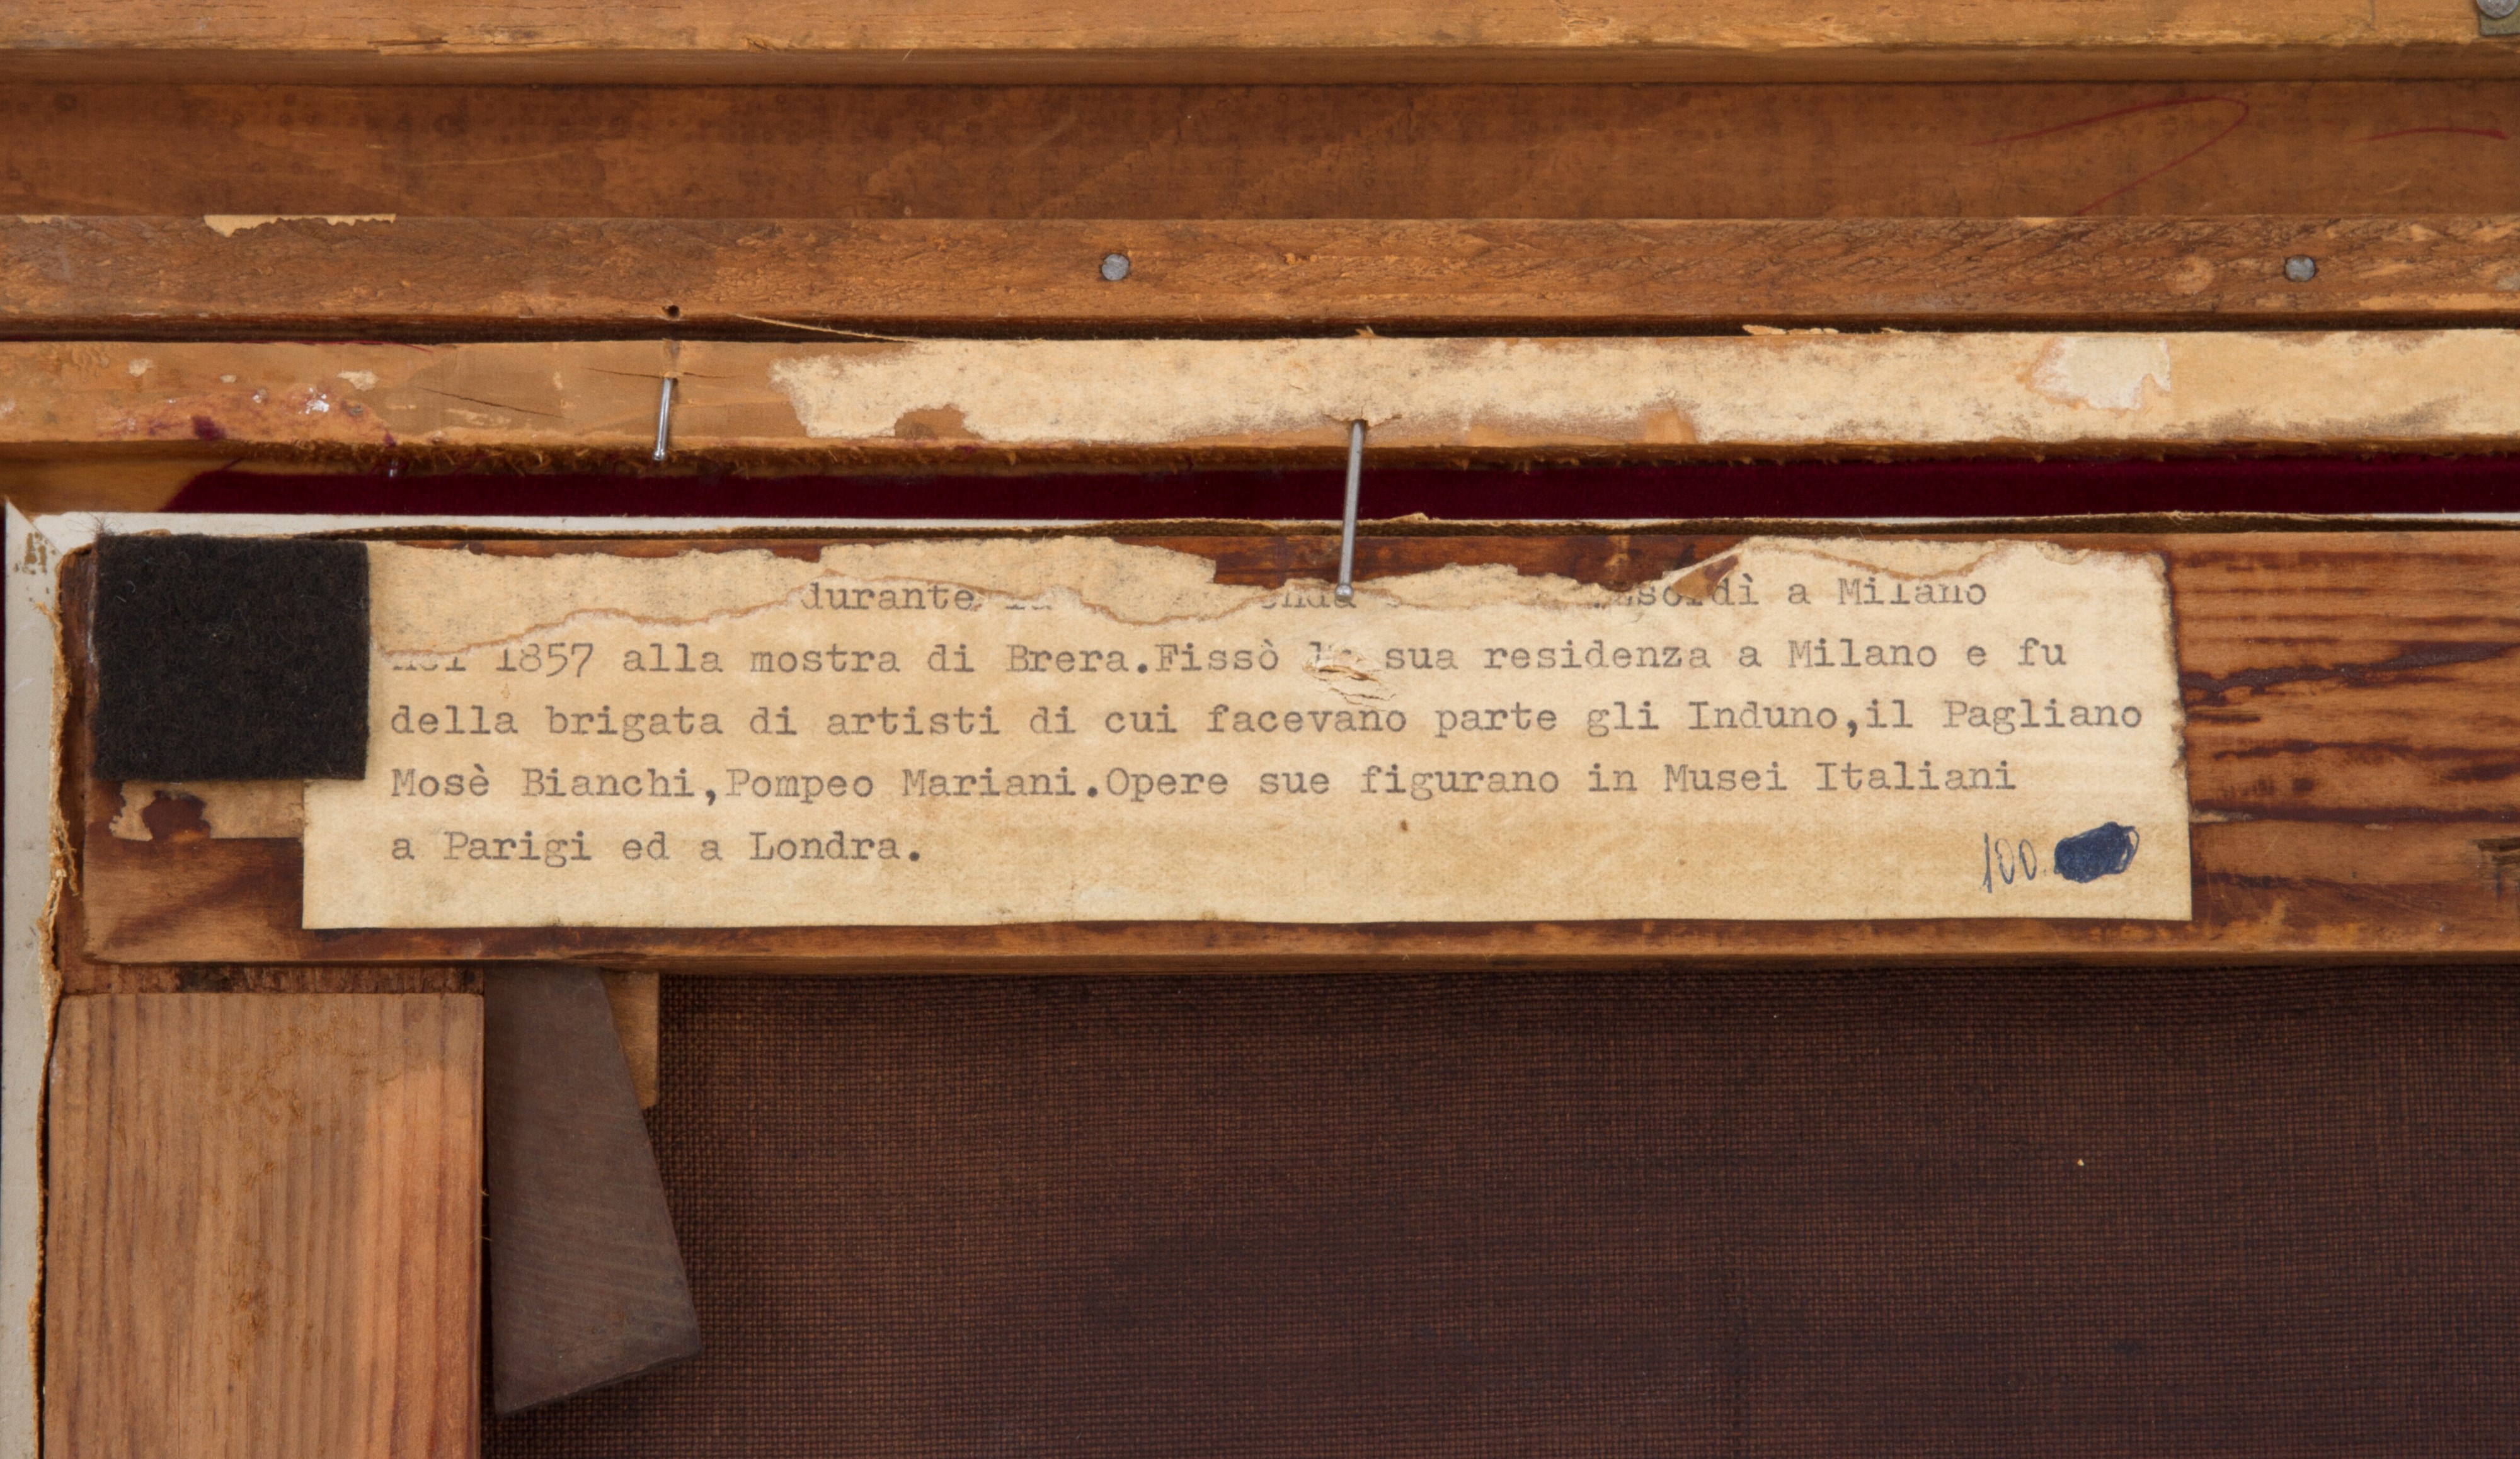 durante esordì a Milano
nel 1857 alla mostra di Brera.Fissò la sua residenza a Milano e fu
della brigata di artisti di cui facevano parte gli Induno,il Pagliano
Mosè Bianchi,Pompeo Mariani.Opere sue figurano in Musei Italiani
a Parigi ed a Londra.
100.